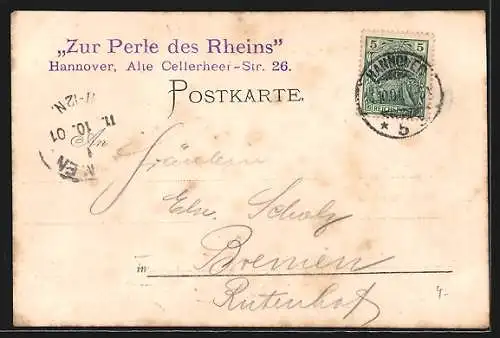 „Zur Perle des Rheins"
Hannover, Alte Cellerheer-Str. 26.
POSTKARTE.
5 5
HANNOVER
* 5
11-12 N.
11. 10. 01
An Fräulein
Els. Scholz
in Bremen
Rutenhof
4.-